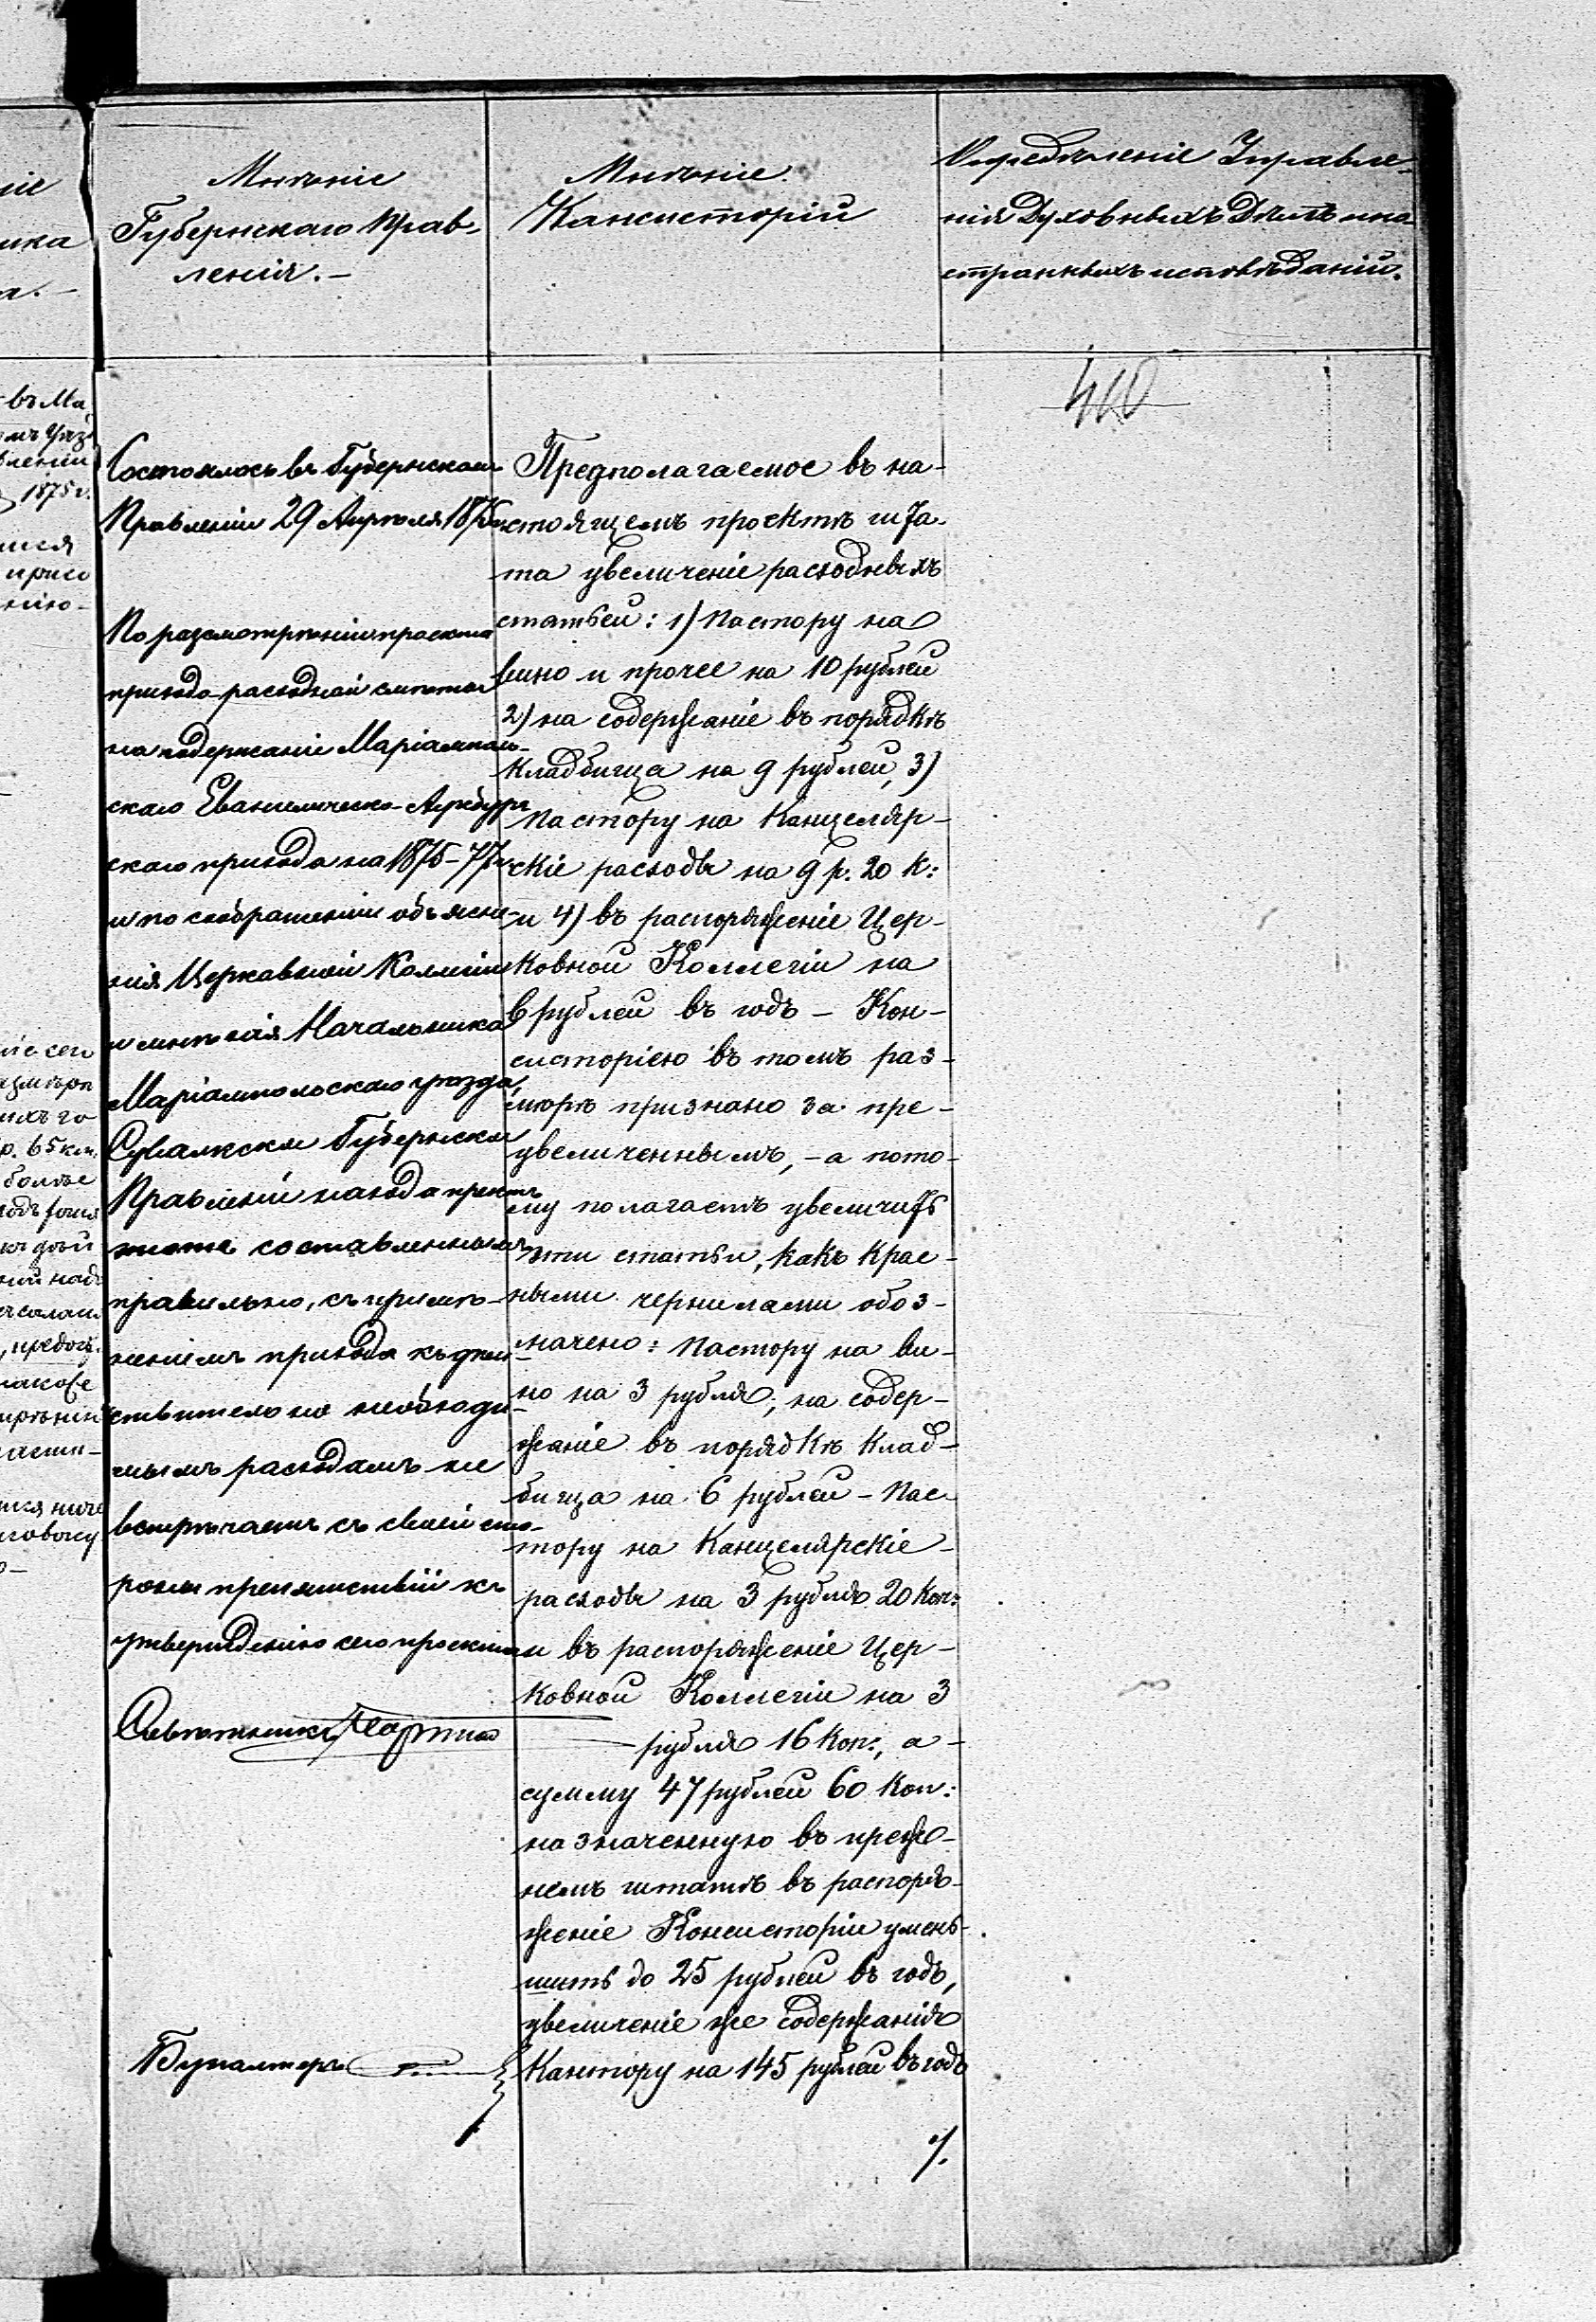 Мнѣніе
Губернскаго Прав-
ленія.-
Состоялось въ Губернскомъ
Правленіи 29 Апрѣля 1875 г.
По разсмотрѣніи проекта
прихода-расходной смѣты
на содержаніе Маріамполь-
скаго Евангелическо-Аугсбург
скаго прихода на 1875-77 г.
и по соображеніи объясне-
нія Церковной Коллегіи
и мнѣнія Начальника
Маріампольскаго уѣзда,
Сувалкское Губернское
Правленіе находя проектъ
штата составленнымъ
правильно, съ примѣ-
неніемъ прихода къ дѣй-
ствительно необходи-
мымъ расходамъ не
встрѣчаетъ съ своей сто-
роны препятствій къ
утвержденію сего проекта
Совѣтникъ
Бухгалтеръ
Мнѣніе
Консисторіи
Предполагаемое въ на-
стоящемъ проектѣ шта-
та увеличеніе расходныхъ
статьей: 1) Пастору на
вино и прочее на 10 рублей
2) на содержаніе въ порядкѣ
кладбища на 9 рублей, 3)
Пастору на Канцеляр-
скіе расходы на 9 р. 20 к:
и 4) въ распоряженіе Цер-
ковной Коллегіи на
6 рублей въ годъ - Кон-
систоріею въ томъ раз-
мѣрѣ признано за пре-
увеличеннымъ, - а пото-
му полагаетъ увеличить
эти статьи, какъ крас-
ными чернилами обоз-
начено: Пастору на ви-
но на 3 рубля; на содер-
жаніе въ порядкѣ клад-
бища на 6 рублей - Пас-
тору на Канцелярскіе
расходы на 3 рубля 20 коп:
и въ распоряженіе Цер-
ковной Коллегіи на 3
рубля 16 коп:, а
сумму 47 рублей 60 коп:
назначенную въ преж-
немъ штатѣ въ распоря-
женіе Консисторіи умень-
шить до 25 рублей въ годъ,
увеличеніе же содержанія
Кантору на 145 рублей въ годъ
./.
Опредѣленіе Управле-
нія Духовныхъ Дѣлъ ино-
странныхъ исповѣданій.